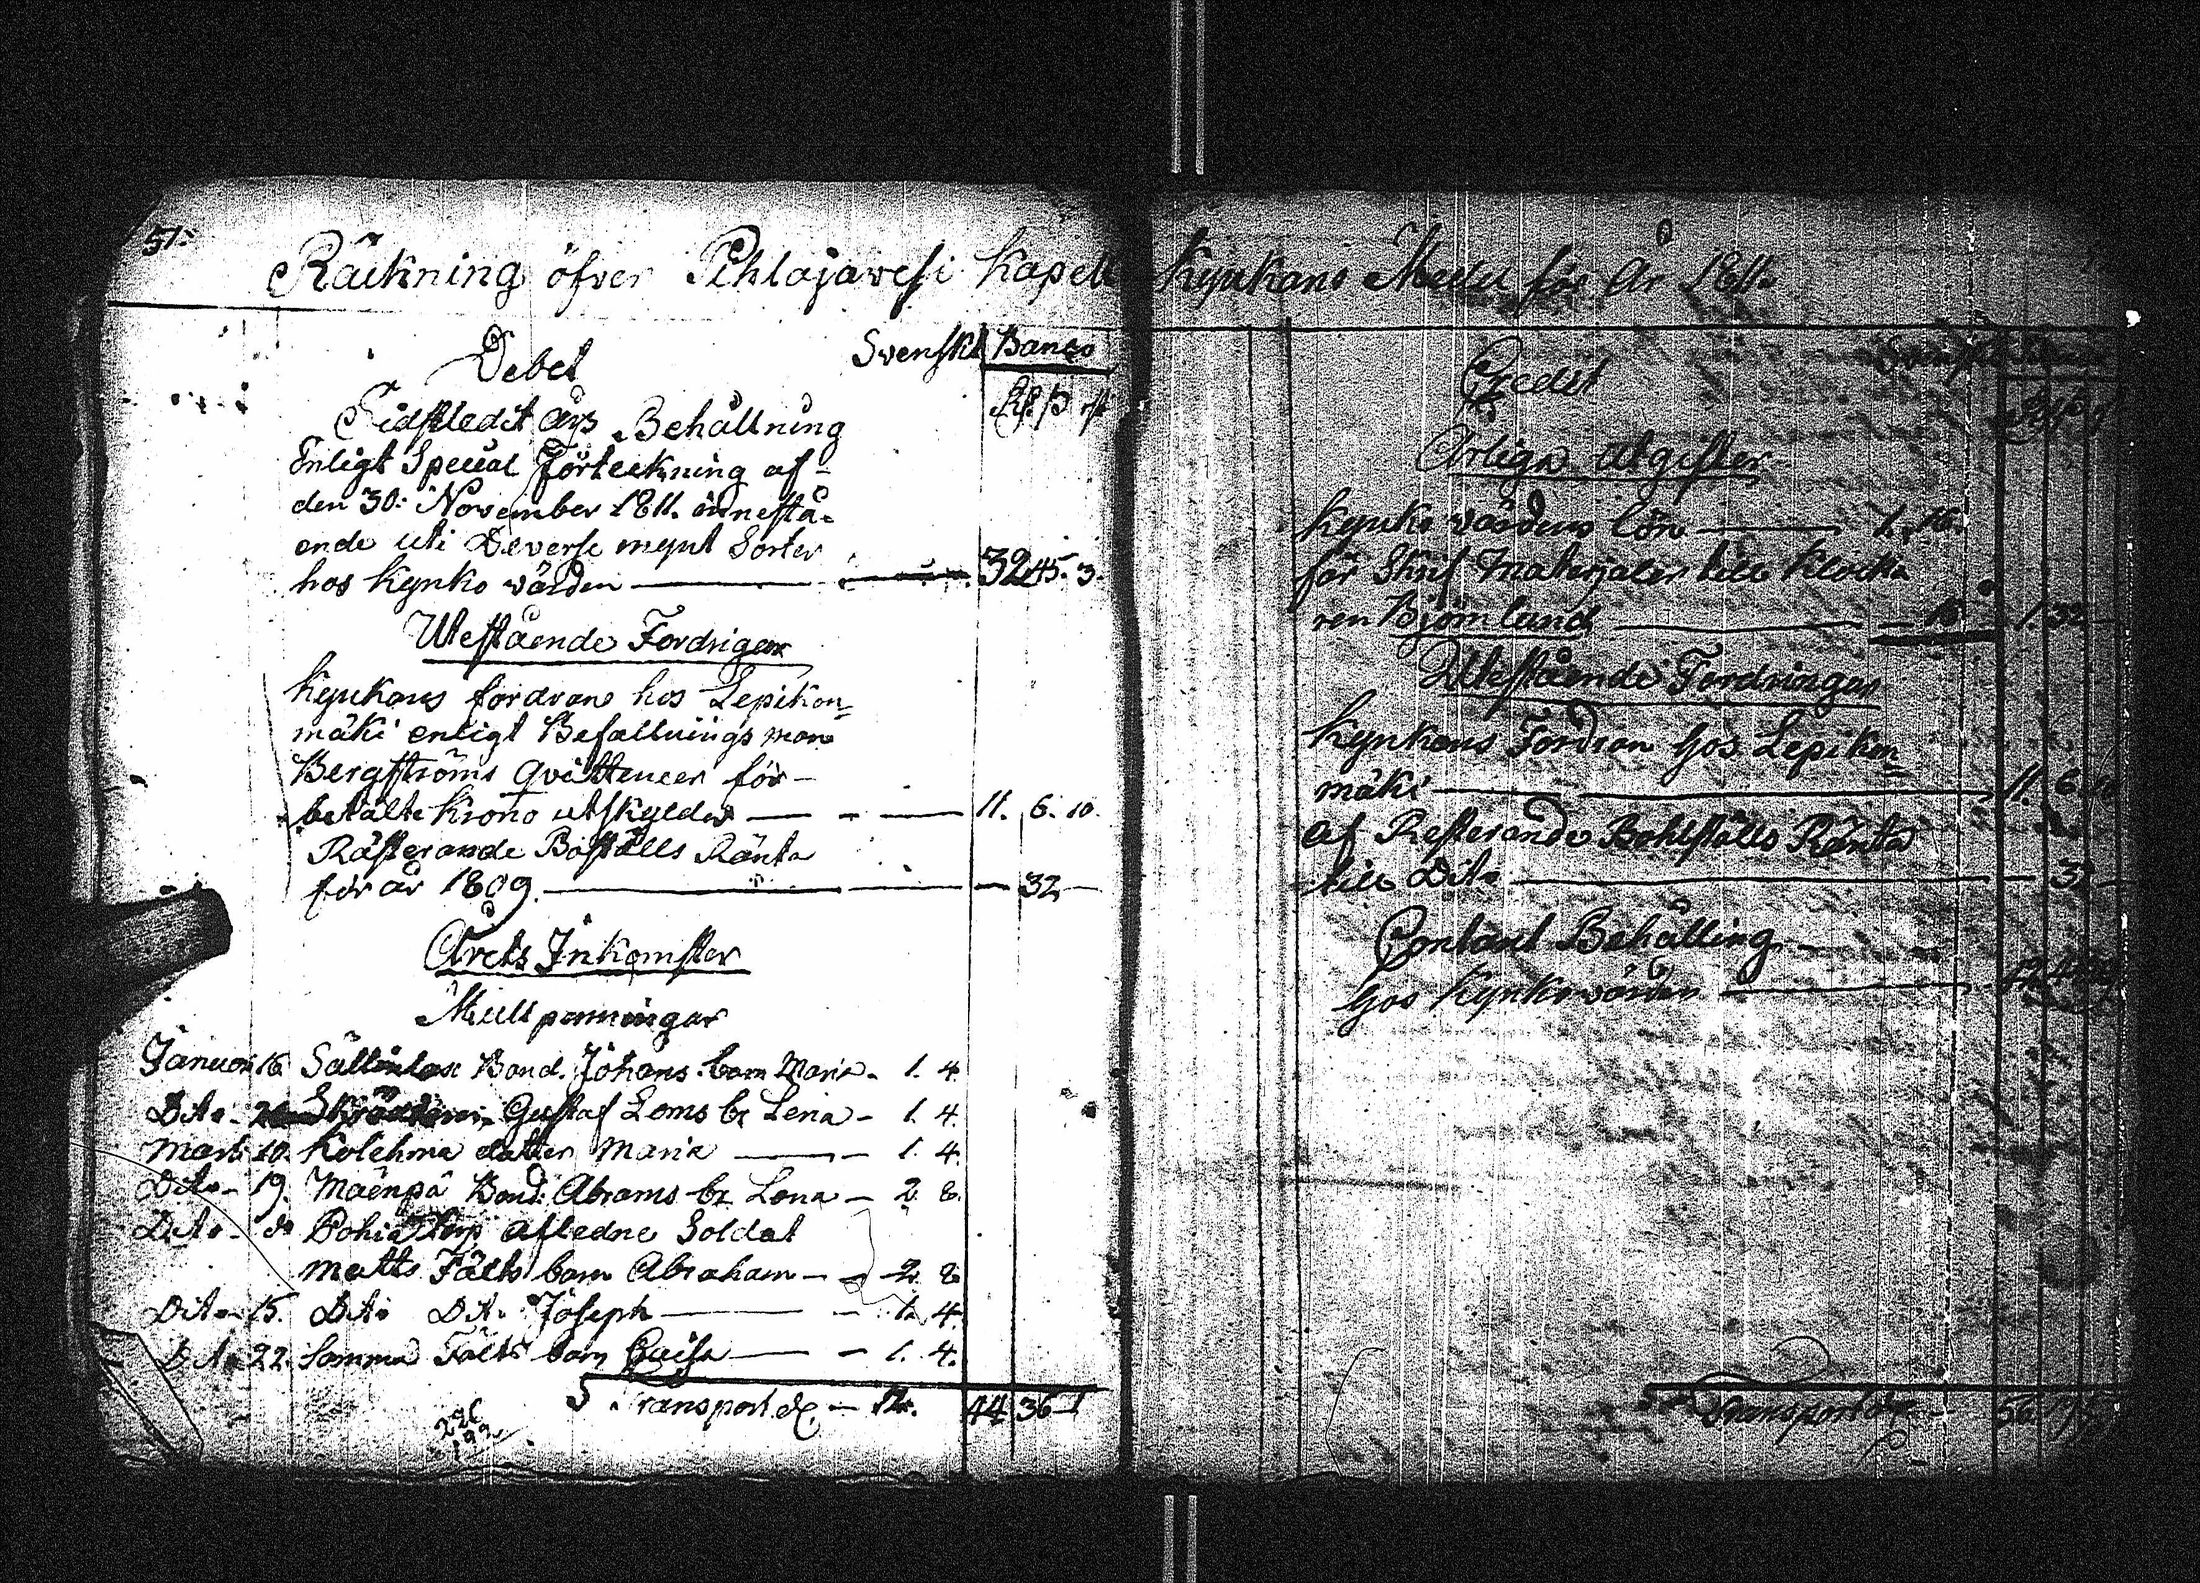 51.
Räckning öfver Pihlajavesi Kapell Kyrkans Medel för År 1811.
Debet
Svenskt Banco
Rd. ß rst
Sidstledit års Behållning
Enligt Special Förteckning af
den 30: November 1811. innestå-
ende uti Deverse mynt Sorter
hos Kyrko värden 32 45. 3.
Utestående Fordrigar
Kyrkans fordran hos Lepikon-
mäki enligt Befallnings man
Bergströms qvittencer för
betalte Krono utskylder 11. 6. 10.
Rästerande Boställs Ränta
för år 1809. 32
Årets Inkomster
Mullpenningar
Januari 16. Bond. Johans barn Maria 1. 4.
Dito Gustaf Loms br Lena 1. 4.
Marti 10. Kolehma datter Maria 1. 4.
Dito 19. Mäenpä Bond: Abrams br Lena 2. 8.
Dito do Pohja torp Afledne Soldat
Matts Fälts barn Abraham 2. 8.
Dito 15. Dito Dito Joseph 1. 4.
Dito 22. Samma Fälts barn Caisa 1. 4.
Transport &c 44 36 1
Credit
Årliga utgifter
Kyrko värdens lön 1. 16.
för Skrif Materjaler till Klocka
ren Björnlund 16 1. 32
Utestående Fordringar
Kyrkans Fordran hos Lepikon-
mäki 11. 6. 10
af Resterande Bohlställs Ränta
till Dito 32
Contant Behålling
hos Kyrkovärden
Transport &c 56. 19